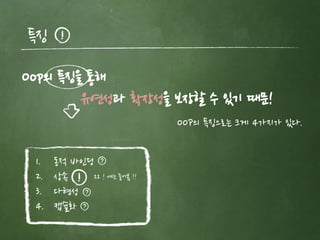 특징 !
OOP의 특징을 통해
유연성과 확장성을 보장할 수 있기 때문!
OOP의 특징으로는 크게 4가지가 있다.
1. 동적 바인딩 ?
2. 상속 !
3. 다형성 ?
4. 캡슐화 ?